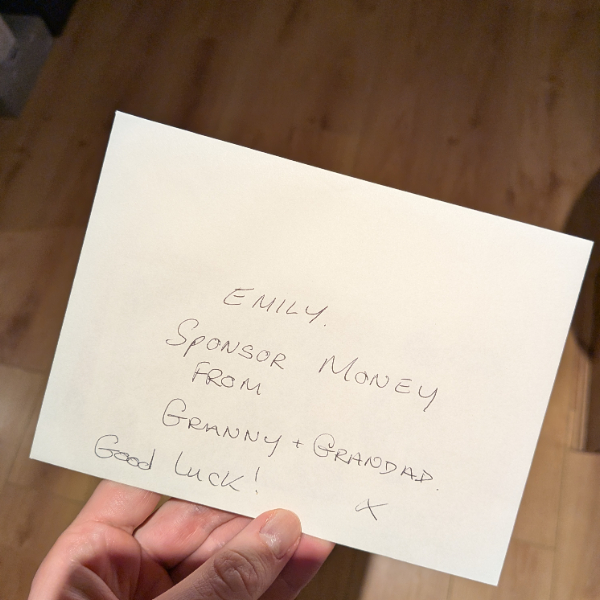 EMILY.
SPONSOR MONEY
FROM
GRANNY + GRANDAD.
Good Luck!
x